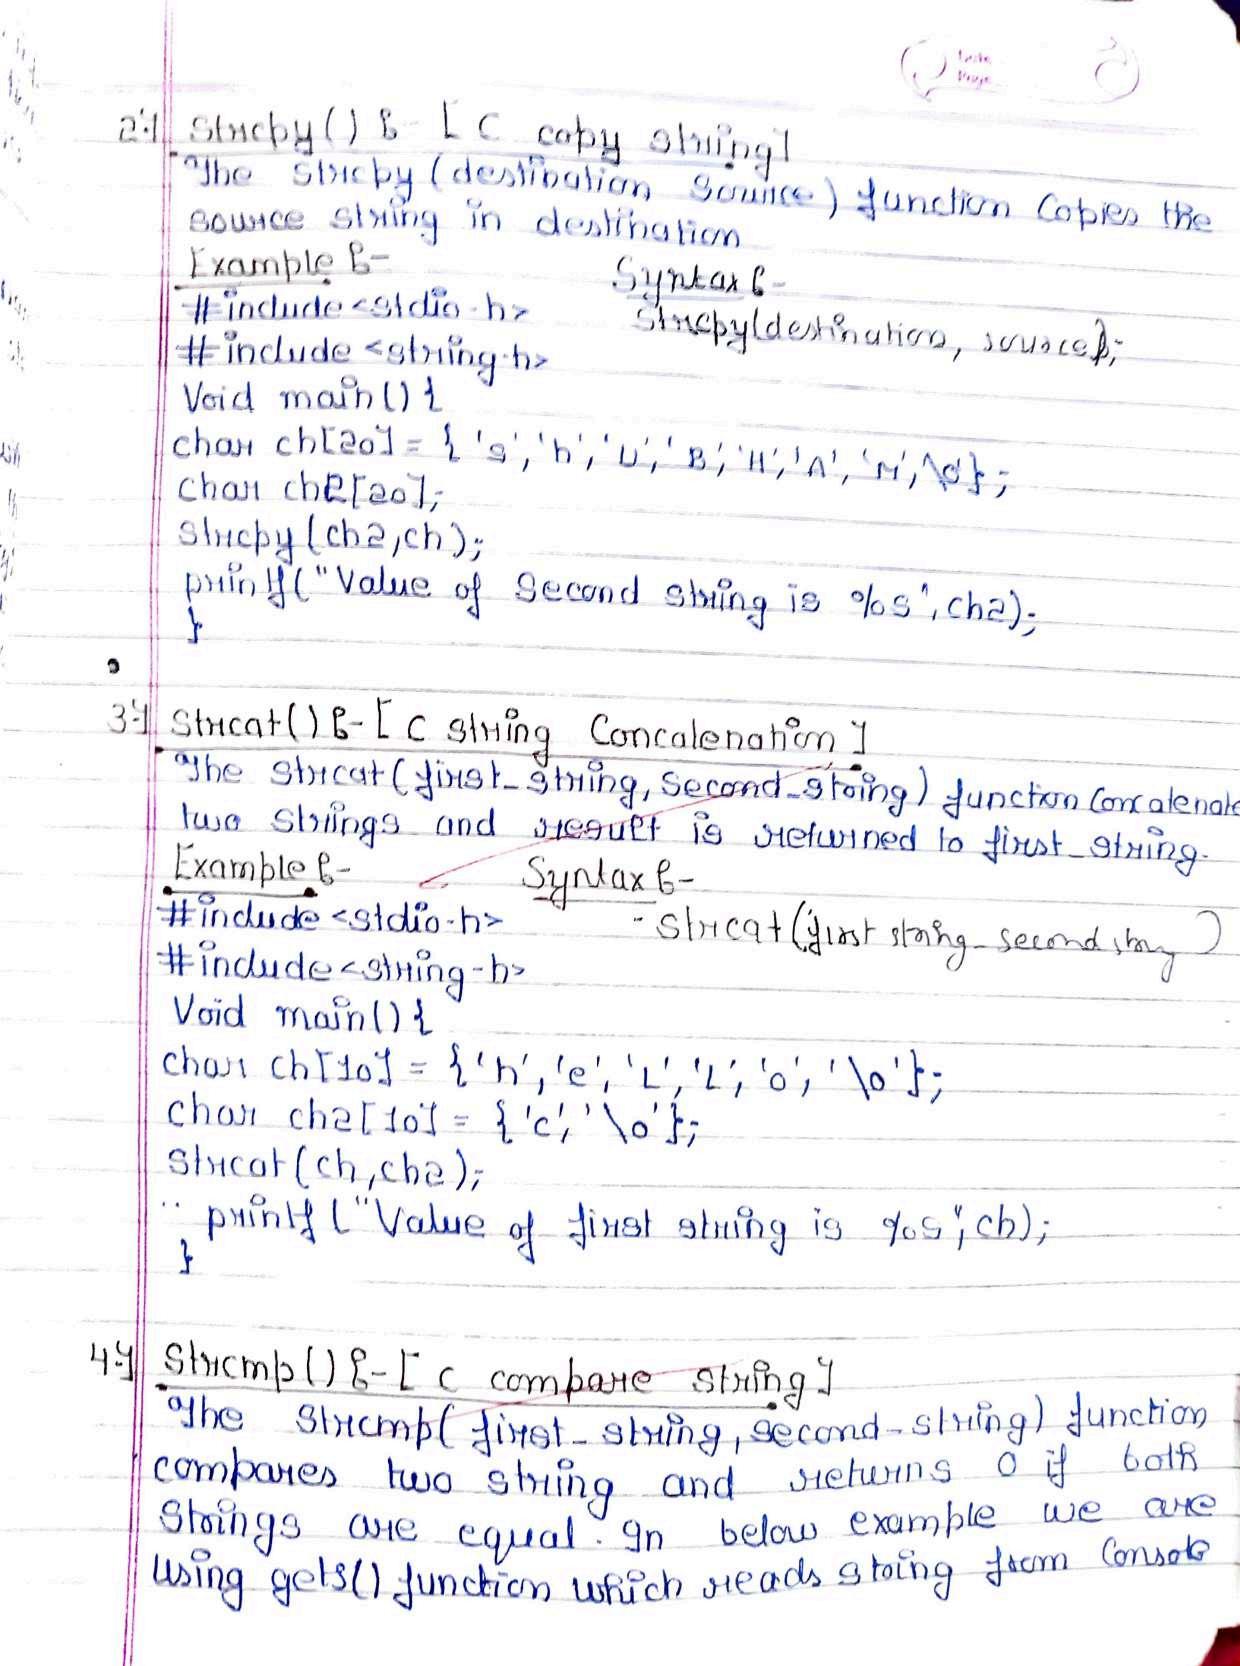 Date
Page
2:-] Strcpy() :- [ C copy string]
The strcpy (destination source) function Copies the
source string in destination
Example :-
Syntax :-
#include <stdio.h>
strcpy(destination, source);
#include <string.h>
Void main() {
char ch[20] = { 's', 'h', 'U', 'B', 'H', 'A', 'M', '\0'};
char ch2[20];
strcpy (ch2, ch);
printf("Value of Second string is %s", ch2);
}
3:-] Strcat() :- [ C string Concatenation ]
The strcat (first_string, second_string) function Concatenate
two strings and result is returned to first_string.
Example :-
Syntax :-
#include <stdio.h>
- strcat (first string_second string )
#include <string.h>
Void main() {
char ch[10] = {'h', 'e', 'L', 'L', 'o', '\o'};
char ch2[10] = { 'c', '\o'};
strcat (ch, ch2);
printf ("Value of first string is %s", ch);
}
4:-] Strcmp() :- [ C compare string]
The Strcmp( first_string, second_string) function
compares two string and returns 0 if both
strings are equal. In below example we are
using gets() function which reads string from Console